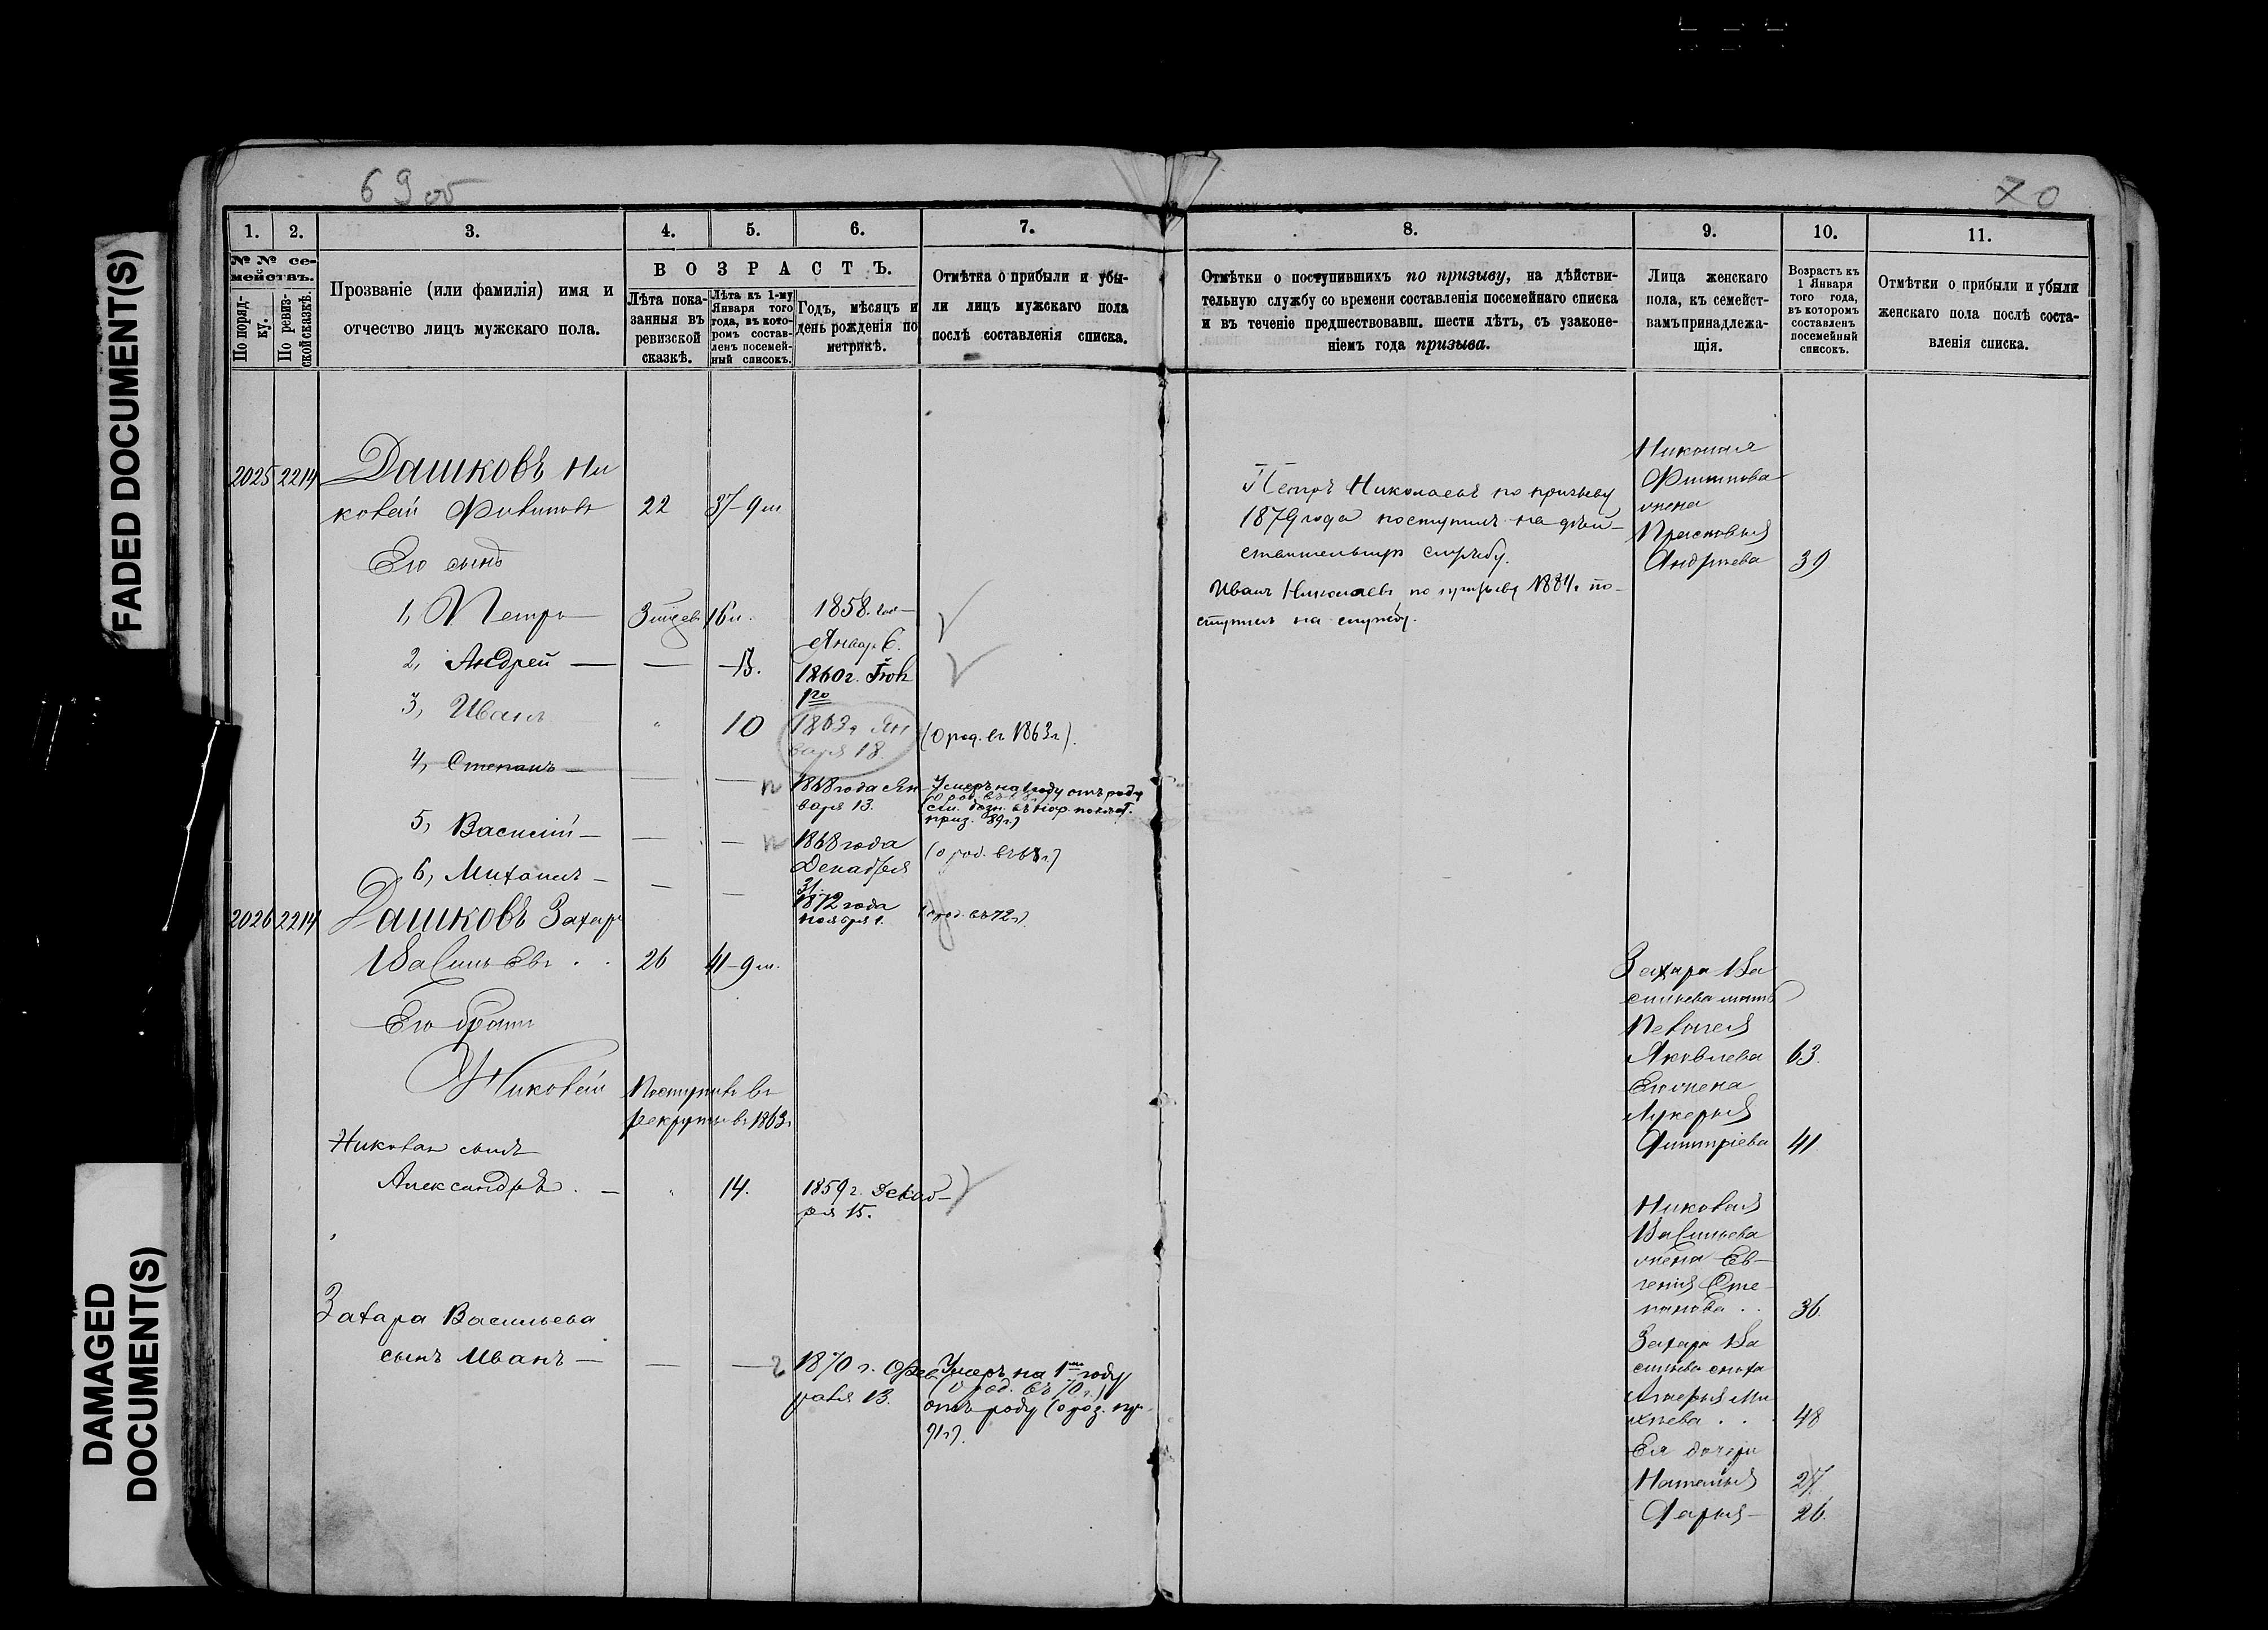 FADED DOCUMENT(S)
DAMAGED
DOCUMENT(S)
69 об
70
1.
2.
3.
4.
5.
6.
7.
8.
9.
10.
11.
№ № се-
мействъ.
По поряд-
ку.
По ревиз-
ской сказкѣ.
Прозваніе (или фамилія) имя и
отчество лицъ мужскаго пола.
ВОЗРАСТЪ.
Лѣта пока-
занныя въ
ревизской
сказкѣ.
Лѣта къ 1-му
Января того
года, въ кото-
ромъ состав-
ленъ посемей-
ный списокъ.
Годъ, мѣсяцъ и
день рожденія по
метрикѣ.
Отмѣтка о прибыли и убы-
ли лицъ мужскаго пола
послѣ составленія списка.
Отмѣтки о поступившихъ по призыву, на дѣйстви-
тельную службу со времени составленія посемейнаго списка
и въ теченіе предшествовавш. шести лѣтъ, съ узаконе-
ніемъ года призыва.
Лица женскаго
пола, къ семейст-
вамъ принадлежа-
щія.
Возрастъ къ
1 Января
того года,
въ которомъ
составленъ
посемейный
списокъ.
Отмѣтки о прибыли и убыли
женскаго пола послѣ соста-
вленія списка.
2025 2214 Дашковъ Ни
колай Филиповъ 22 37-9 м
Его сынъ
1, Петръ 16 л. 1858 го-
Январ. 6.
2, Андрей — — 13. 1860 г.
3, Иванъ " 10 1863 г. Ян
варя 18. (О род. въ 1863 г.).
4, Степанъ — — — 1868 года Ян
варя 13.
Умеръ на 1 году отъ роду
приз. 89 г.)
5, Василій — — — 1868 года
Декабря
31.
(о род. въ 68 г.)
6, Михаилъ — — — 1872 года
ноября 1.
(о род. въ 72 г.)
Петръ Николаевъ по призыву
1879 года поступилъ на дѣй-
ствительную службу.
Иванъ Николаевъ по призыву 1884 г. по-
ступилъ на службу.
Николая
Филипова
жена
Прасковья
Андреева 39
2026 2214 Дашковъ Захаръ
Васильевъ . . 26 41-9 м.
Его братъ
Николай Поступилъ въ
рекруты въ 1863 г
Николая сынъ
Александръ . — " 14. 1859 г. Декаб-
ря 15.
Захара Васильева
сынъ Иванъ — — — 1870 г. Фев
раля 13.
Умеръ на 1мъ году
(О род. въ 70 г.)
отъ роду
71 г).
Захара Ва
сильева мать
Пелагея
Яковлева 63.
Его жена
Лукерья
Дмитріева 41
Николая
Васильева
жена Ев-
генія Сте-
панова . . 36
Захара Ва
сильева сноха
хѣева . . 48
Ея дочери
Наталья 27
Дарья — 26.